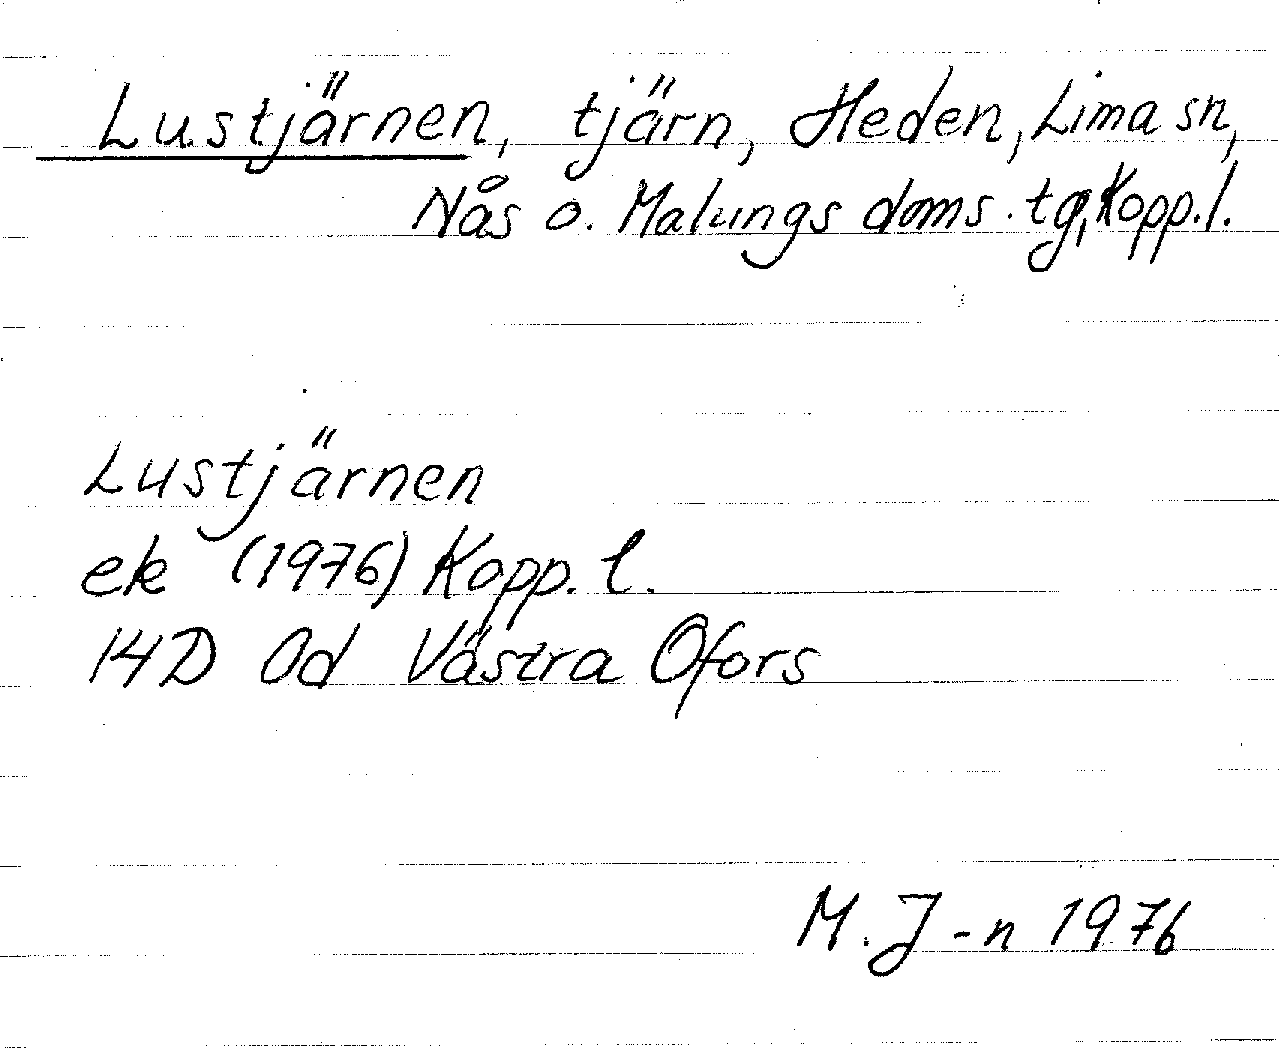 Lustjärnen, tjärn, Heden, Lima sn,
Nås o. Malungs doms. tg, Kopp. l.
Lustjärnen
ek (1976) Kopp. l.
14D 0d Västra Ofors
M. J-n 1976